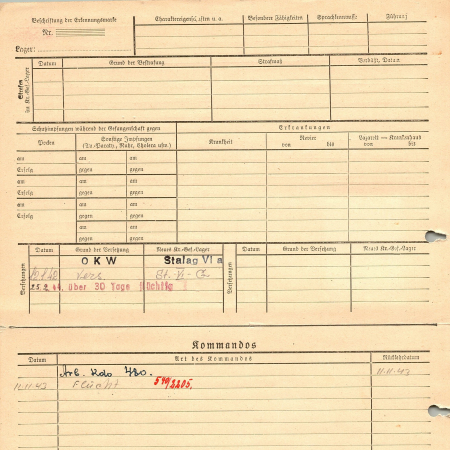 Beschriftung der Erkennungsmarke
Nr.
Lager:
Charaktereigensch. usw. u. a.
Besondere Fähigkeiten
Sprachkenntnisse
Führung
Strafen im Kr.-Gef.-Lager
Datum Grund der Bestrafung Strafmaß Verbüßt, Datum
Schutzimpfungen während der Gefangenschaft gegen
Erkrankungen
Pocken Sonstige Impfungen (Ty.-Paraty., Ruhr, Cholera usw.) Krankheit Revier von bis Lazarett — Krankenhaus von bis
am am
Erfolg gegen
am am
Erfolg gegen
am am
Erfolg gegen
am
gegen
am
gegen
Versetzungen
Datum Grund der Versetzung Neues Kr.-Gef.-Lager
Versetzungen
Datum Grund der Versetzung Neues Kr.-Gef.-Lager
OKW Stalag VI a
25.2.44. über 30 Tage flüchtig
Kommandos
Datum Art des Kommandos Rückkehrdatum
Arb. Kdo 480. 11.11.43
11.11.43 Flucht 540/2205.